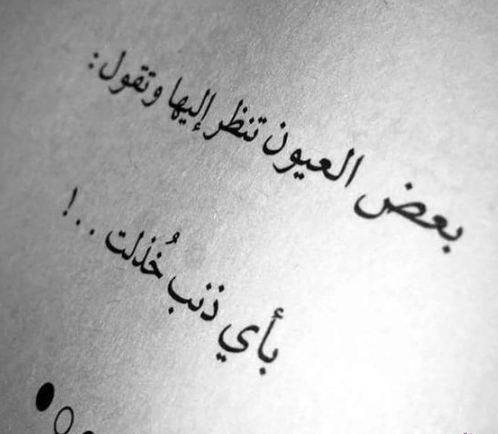 بعض العيون تنظر إليها وتقول :
بأي ذنب خُذلت ..!